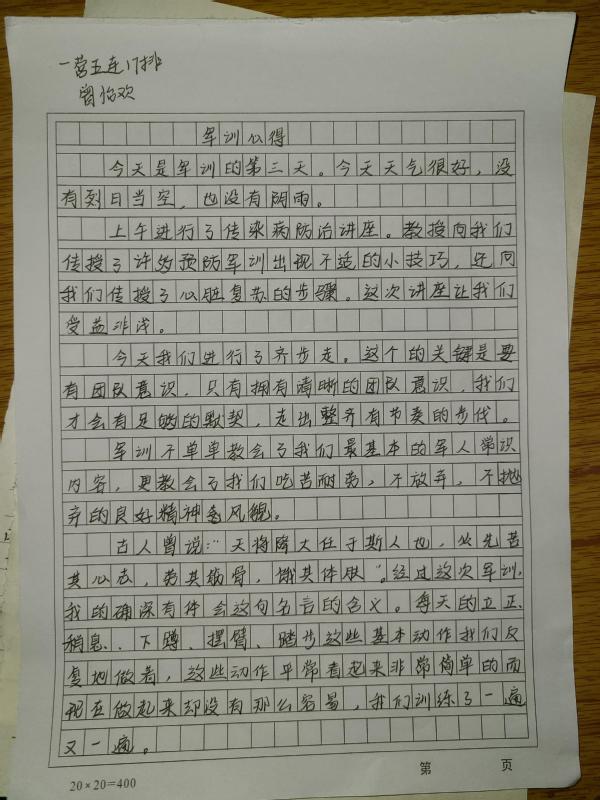 一营五连17排
曾怡欢
军训心得
今天是军训的第三天。今天天气很好，没
有烈日当空，也没有阴雨。
上午进行了传染病防治讲座。教授向我们
传授了许多预防军训出现不适的小技巧，还向
我们传授了心脏复苏的步骤。这次讲座让我们
受益非浅。
今天我们进行了齐步走。这个的关键是要
有团队意识，只有拥有清晰的团队意识，我们
才会有足够的默契，走出整齐有节奏的步伐。
军训不单单教会了我们最基本的军人常识
内容，更教会了我们吃苦耐劳，不放弃，不抛
弃的良好精神与风貌。
古人曾说："天将降大任于斯人也，必先苦
其心志，劳其筋骨，饿其体肤"。经过这次军训，
我的确深有体会这句名言的含义。每天的立正、
稍息、下蹲、摆臂、踏步这些基本动作我们反
复地做着，这些动作平常看起来非常简单的而
现在做起来却没有那么容易，我们训练了一遍
又一遍。
20×20=400
第 页